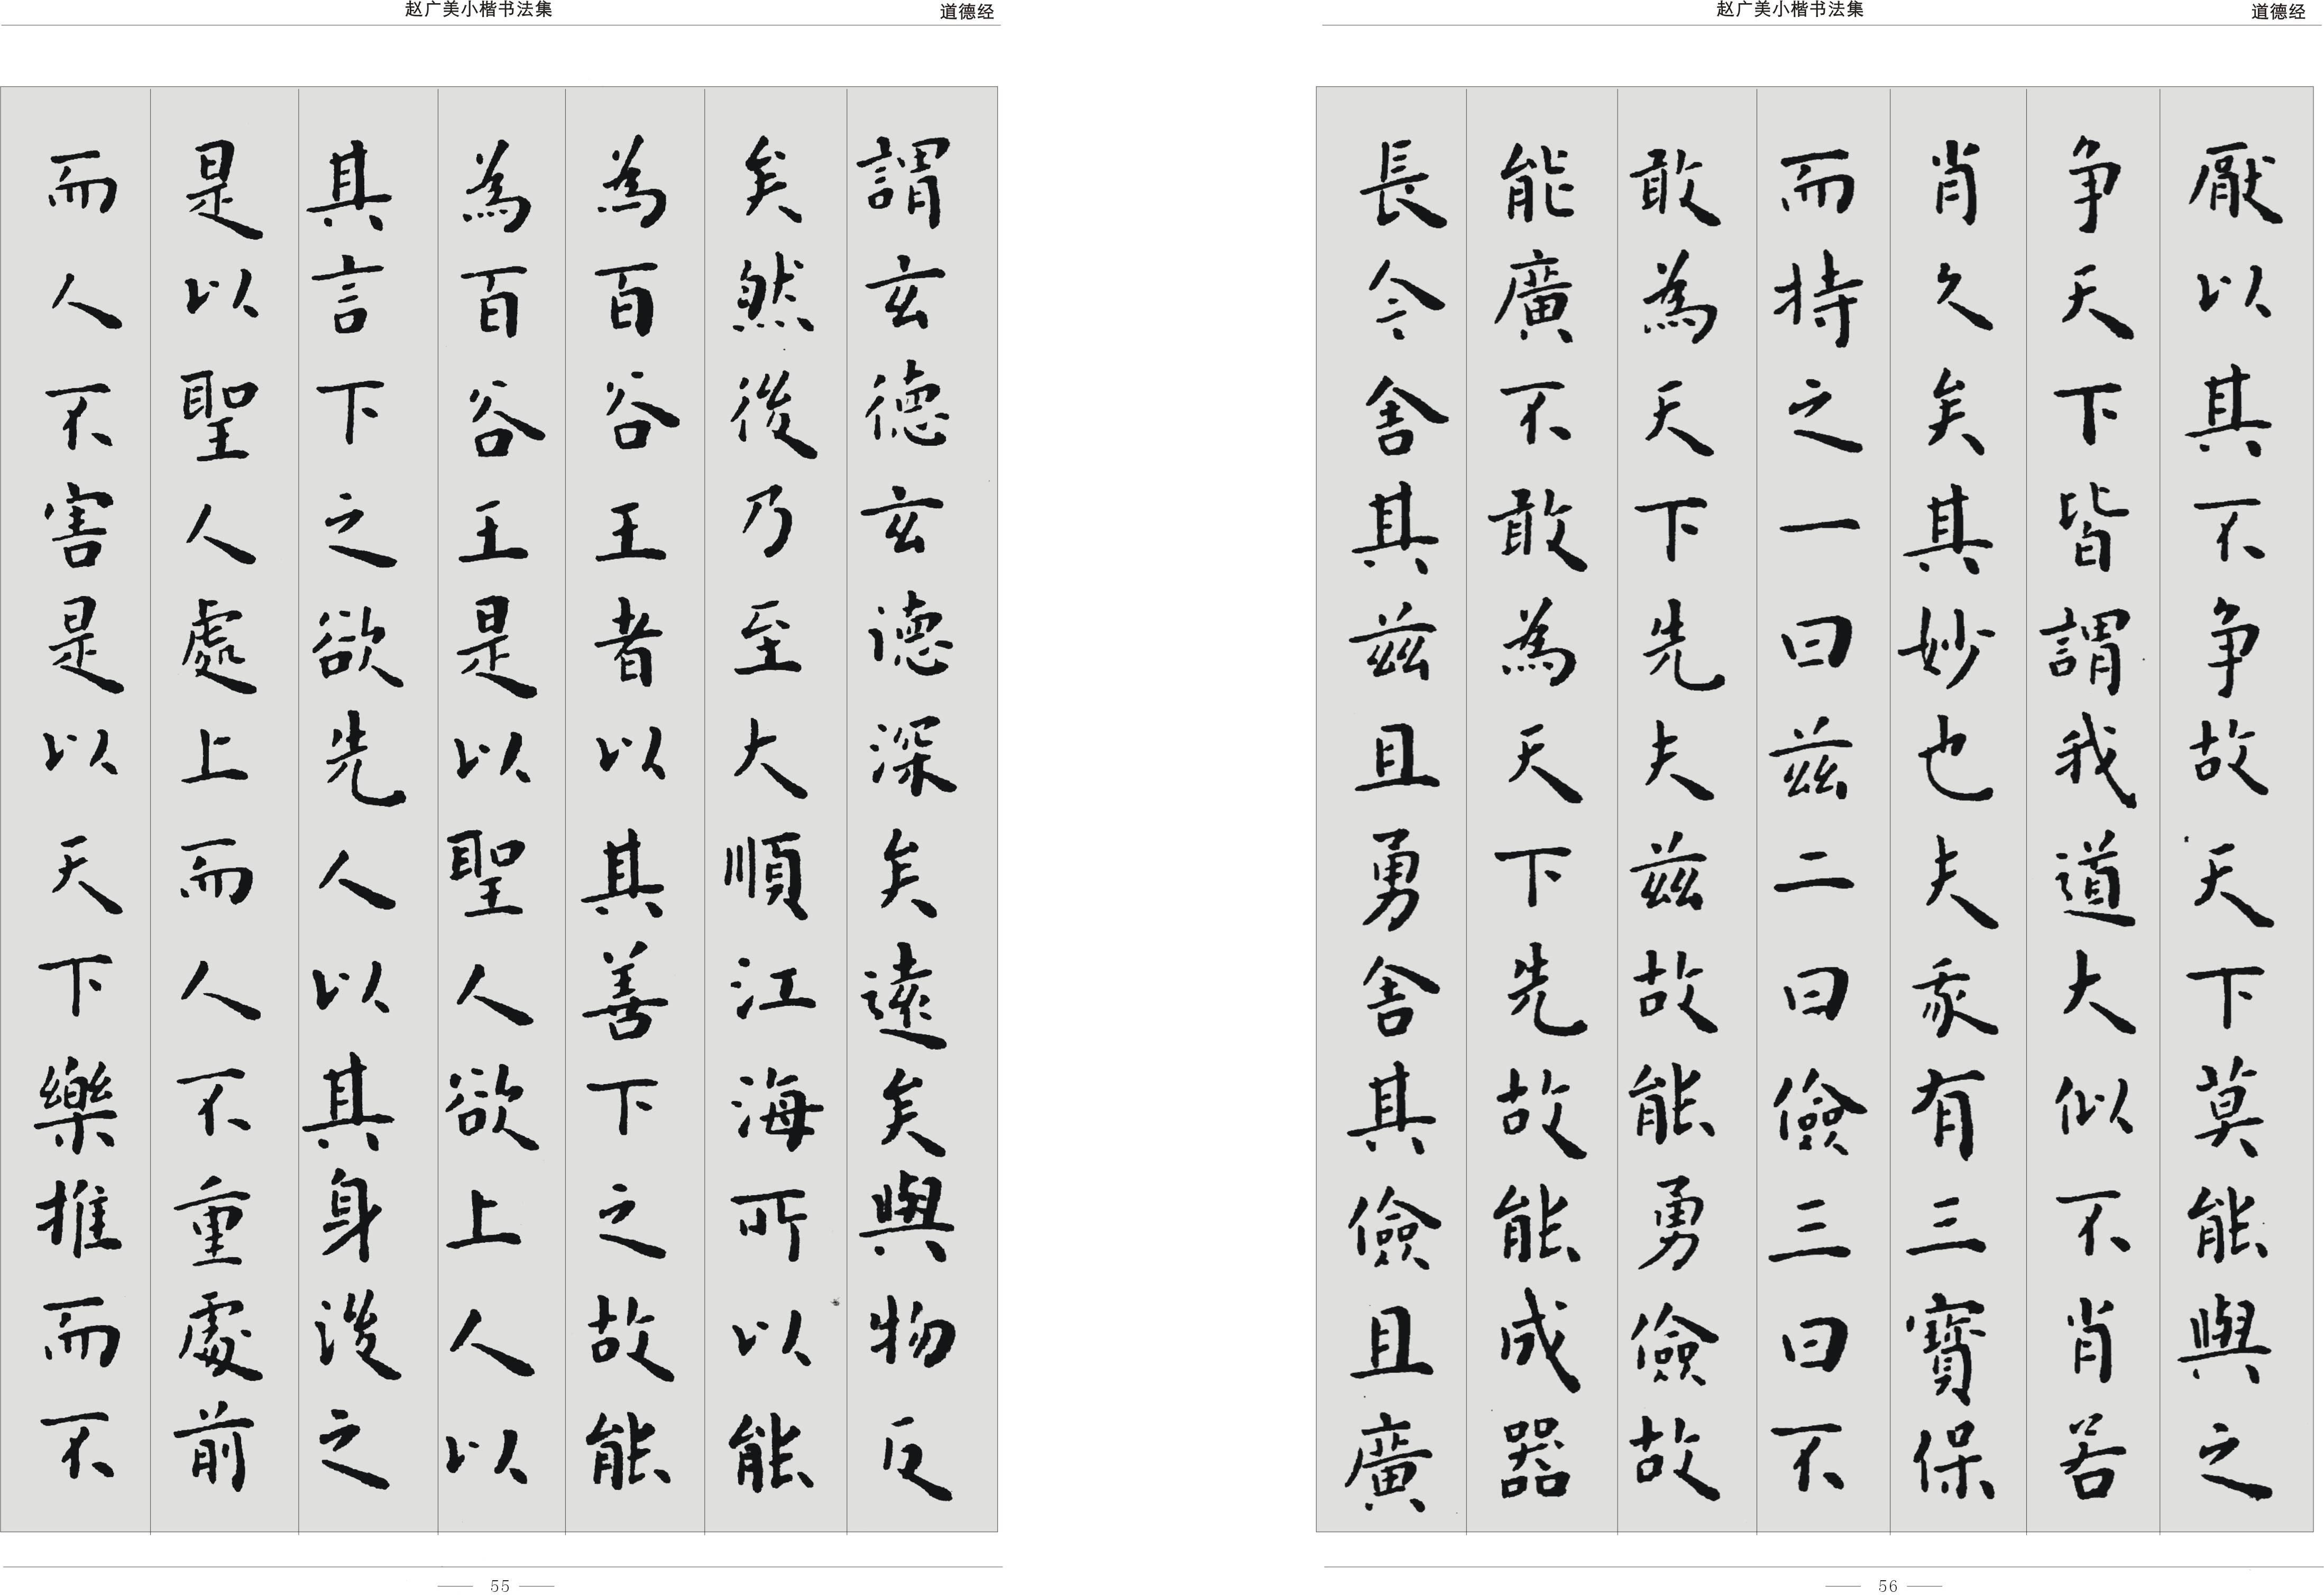 赵广美小楷书法集
道德经
謂玄德玄德深矣遠矣與物反
矣然後乃至大順江海所以能
為百谷王者以其善下之故能
為百谷王是以聖人欲上人以
其言下之欲先人以其身後之
是以聖人處上而人不重處前
而人不害是以天下樂推而不
55
赵广美小楷书法集
道德经
厭以其不争故天下莫能與之
争天下皆謂我道大似不肖若
肖久矣其妙也夫我有三寳保
而持之一曰兹二曰儉三曰不
敢為天下先夫兹故能勇儉故
能廣不敢為天下先故能成器
長今舍其兹且勇舍其儉且廣
56